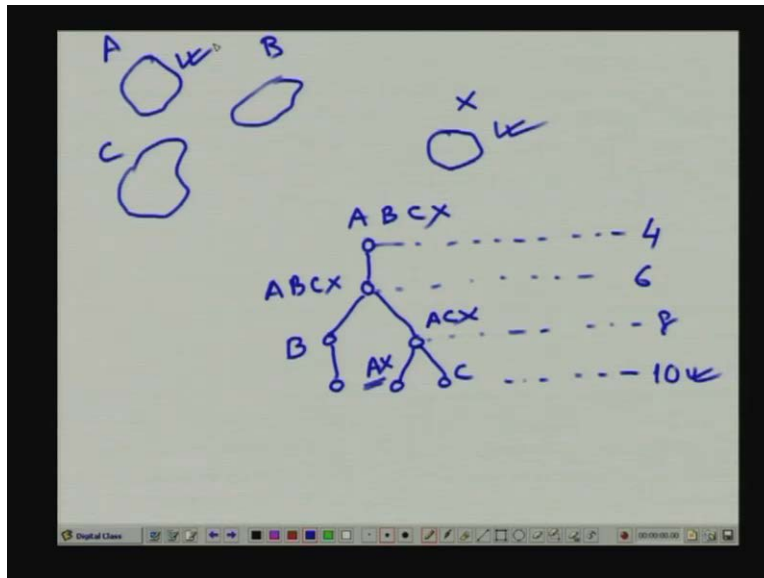 A
B
X
C
A B C X
4
A B C X
6
A C X
8
B
A X
C
10
Digital Class
00:00:00.00